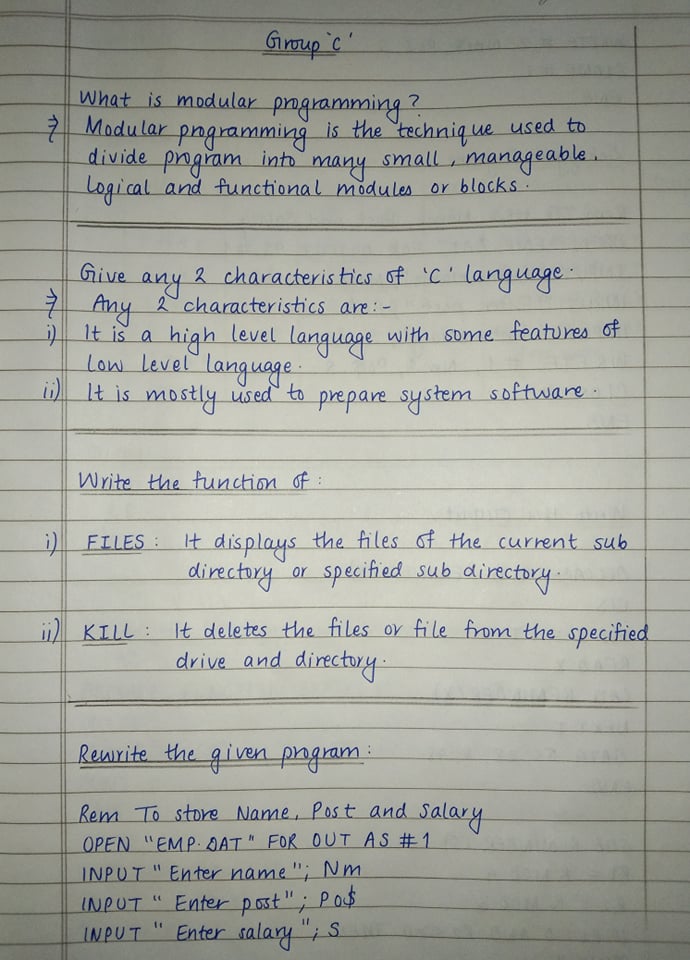 Group 'C'
What is modular programming?
⇒ Modular programming is the technique used to
divide program into many small, manageable,
logical and functional modules or blocks.
Give any 2 characteristics of 'C' language.
⇒ Any 2 characteristics are:-
i) It is a high level language with some features of
low level language.
ii) It is mostly used to prepare system software.
Write the function of :
i) FILES : It displays the files of the current sub
directory or specified sub directory.
ii) KILL : It deletes the files or file from the specified
drive and directory.
Rewrite the given program :
Rem To store Name, Post and Salary
OPEN "EMP.DAT" FOR OUT AS #1
INPUT "Enter name"; Nm
INPUT " Enter post"; Po$
INPUT " Enter salary"; S